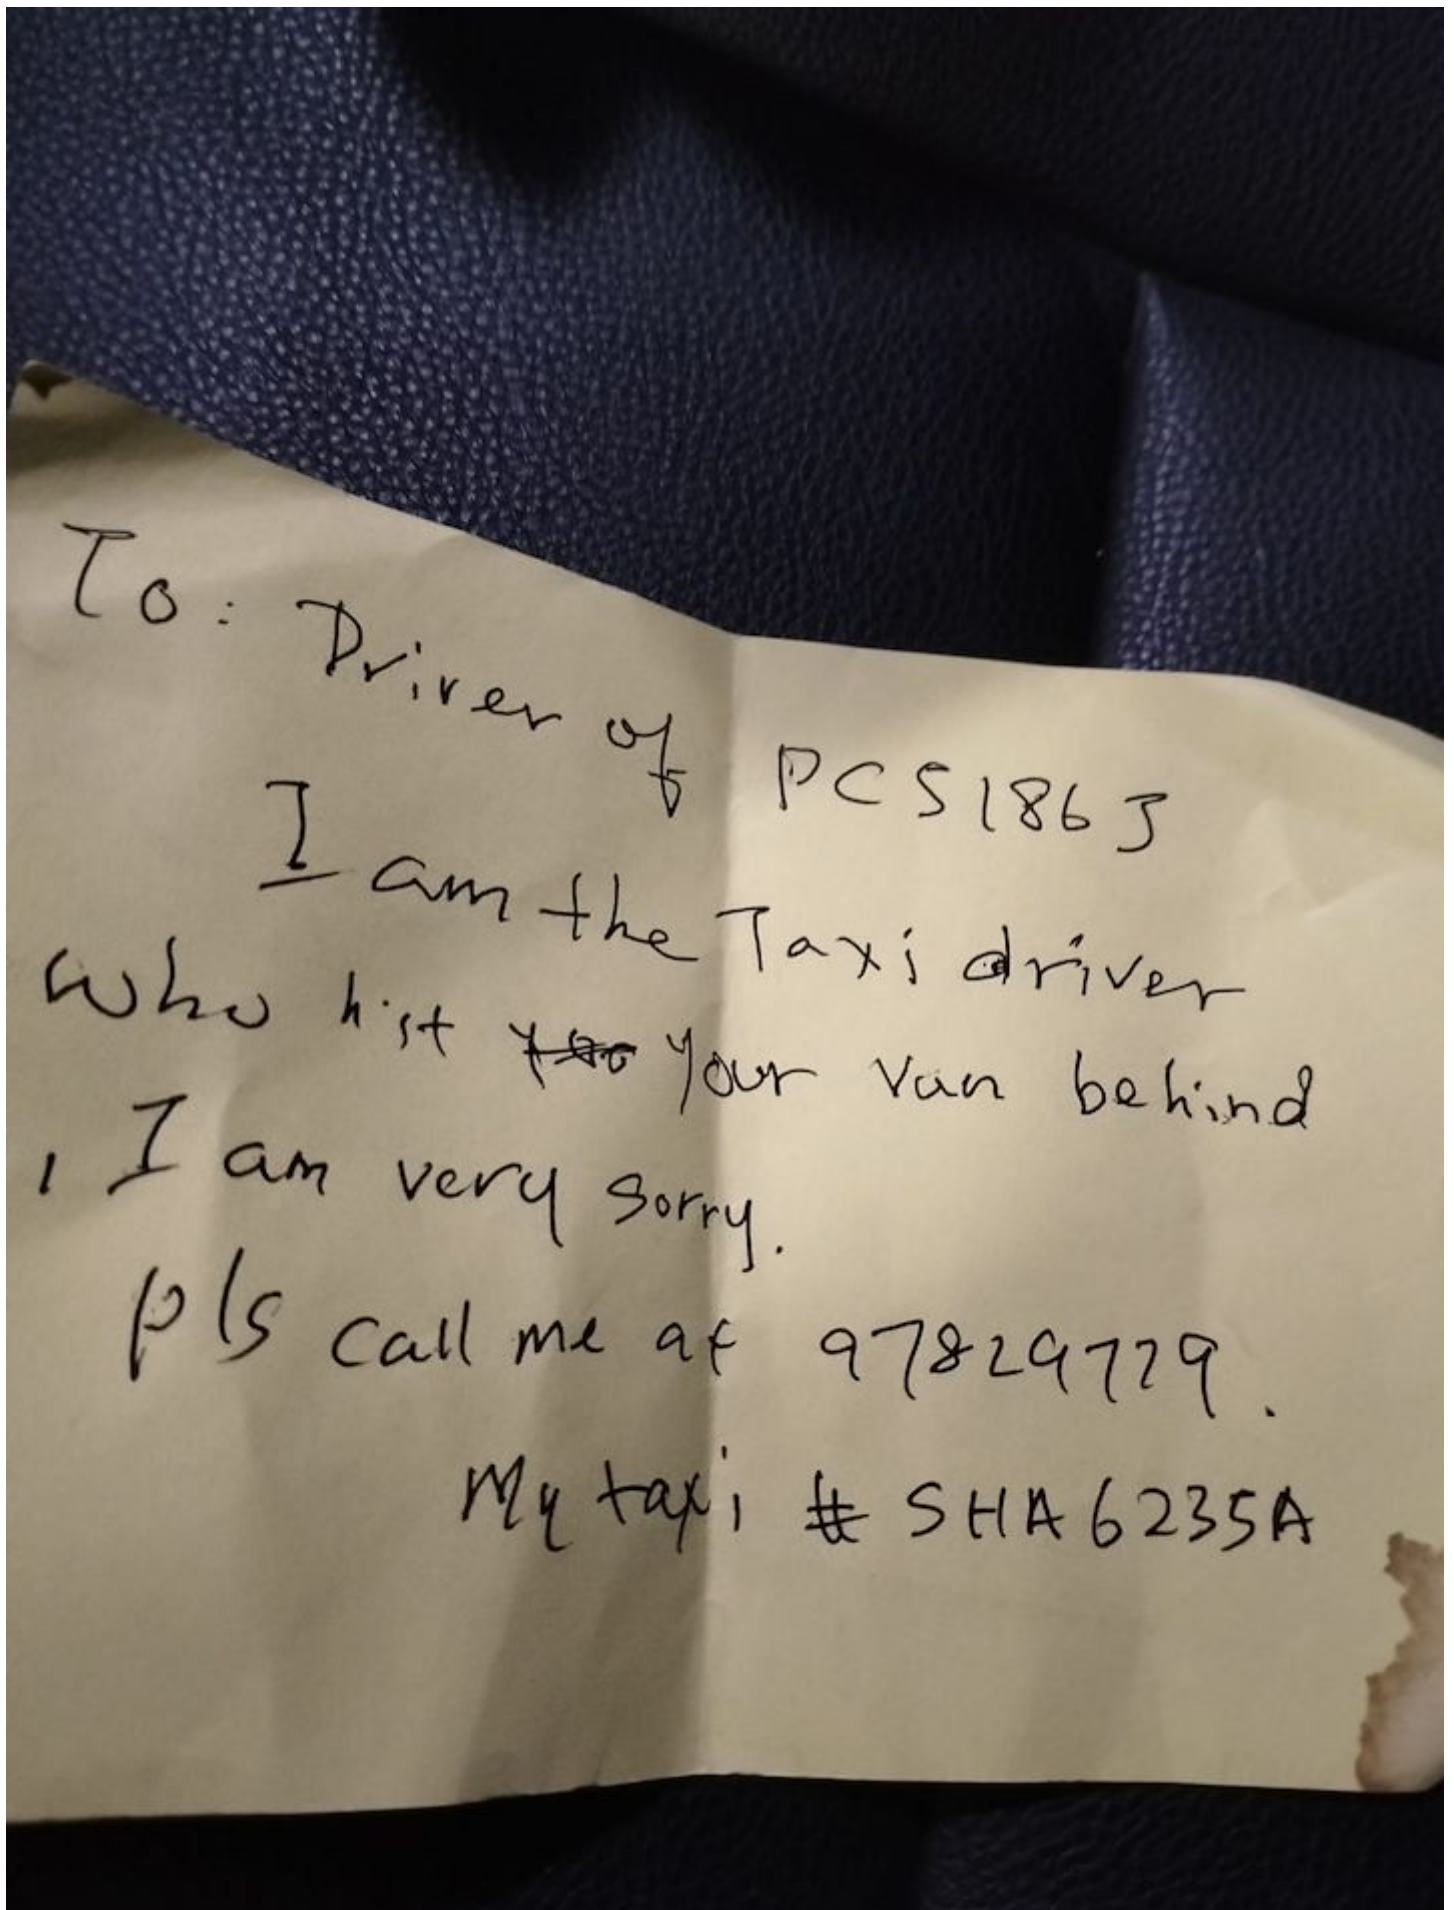 To: Driver of PC5186J
I am the Taxi driver
who hist your van behind
, I am very sorry.
pls call me at 97829729.
My taxi # SHA6235A